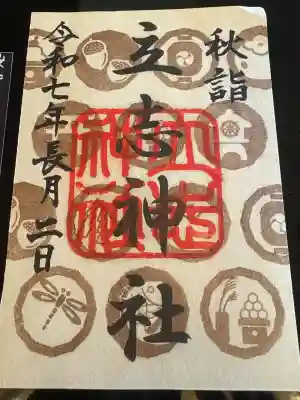 秋詣
立志神社
令和七年長月二日
立志神社